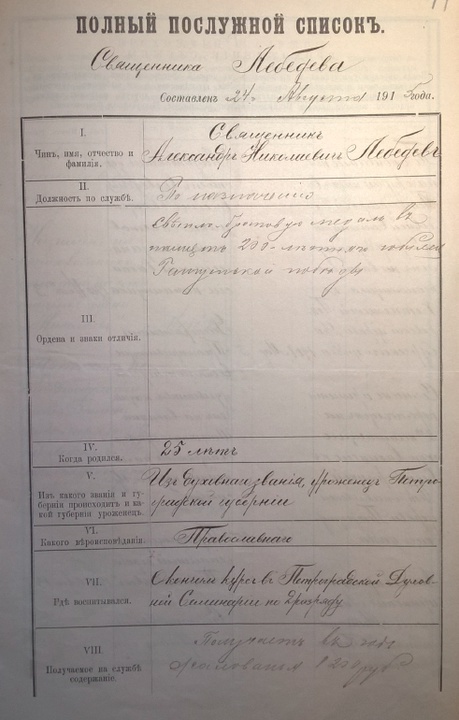 ПОЛНЫЙ ПОСЛУЖНОЙ СПИСОКЪ.
Священника Лебедева
Составленъ 24 Августа 1915 года.
I.
Чинъ, имя, отчество и
фамилія.
Священникъ
Александръ Николаевичъ Лебедевъ
II.
Должность по службѣ.
По назначенію
III.
Ордена и знаки отличія.
Свѣтло-бронзовую медаль въ
память 200-лѣтняго юбилея
Гангутской побѣды
IV.
Когда родился.
25 лѣтъ
V.
Изъ какого званія и гу-
берніи происходитъ и ка-
кой губерніи уроженецъ.
Изъ духовнаго званія, уроженецъ Петро-
градской губерніи
VI.
Какого вѣроисповѣданія.
Православнаго
VII.
Гдѣ воспитывался.
Окончилъ курсъ въ Петроградской Духов-
ной Семинаріи по 2 разряду
VIII.
Получаемое на службѣ
содержаніе.
Получаетъ въ годъ
жалованья 1200 руб